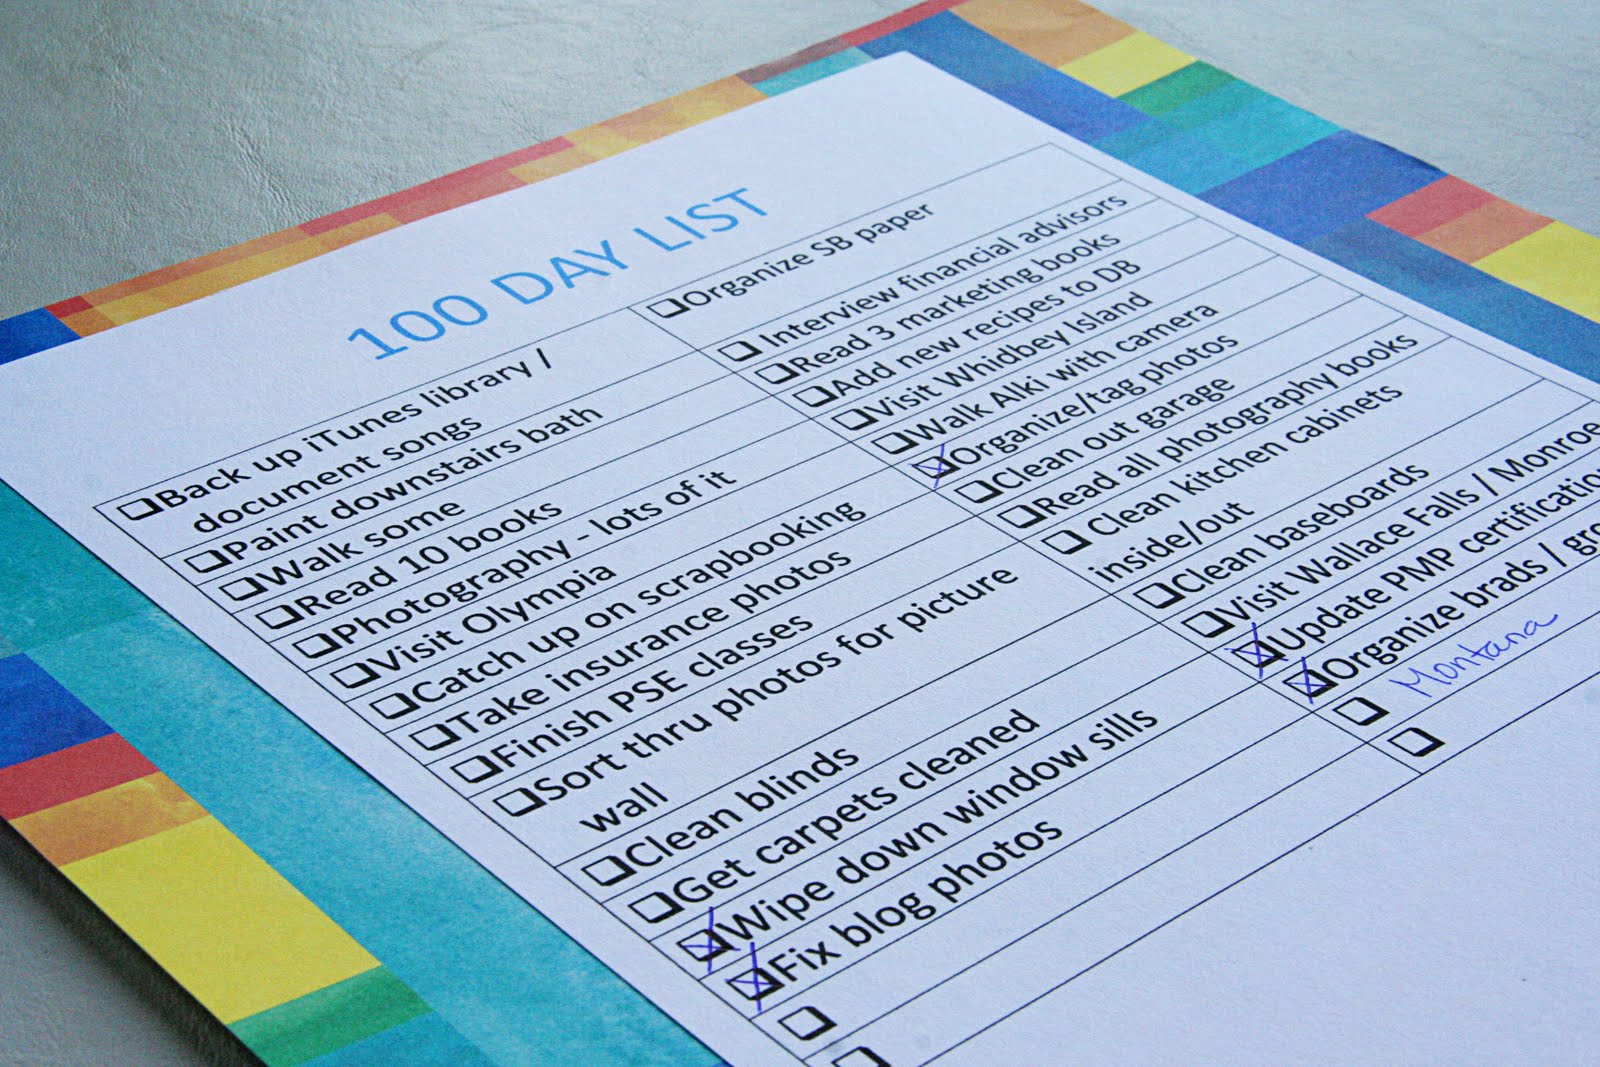 100 DAY LIST
Back up iTunes library /
document songs
Paint downstairs bath
Walk some
Read 10 books
Photography - lots of it
Visit Olympia
Catch up on scrapbooking
Take insurance photos
Finish PSE classes
Sort thru photos for picture
wall
Clean blinds
Get carpets cleaned
Wipe down window sills
Fix blog photos
Organize SB paper
Interview financial advisors
Read 3 marketing books
Add new recipes to DB
Visit Whidbey Island
Walk Alki with camera
Organize/tag photos
Clean out garage
Read all photography books
Clean kitchen cabinets
inside/out
Clean baseboards
Visit Wallace Falls / Monroe
Update PMP certification
Organize brads /
Montana